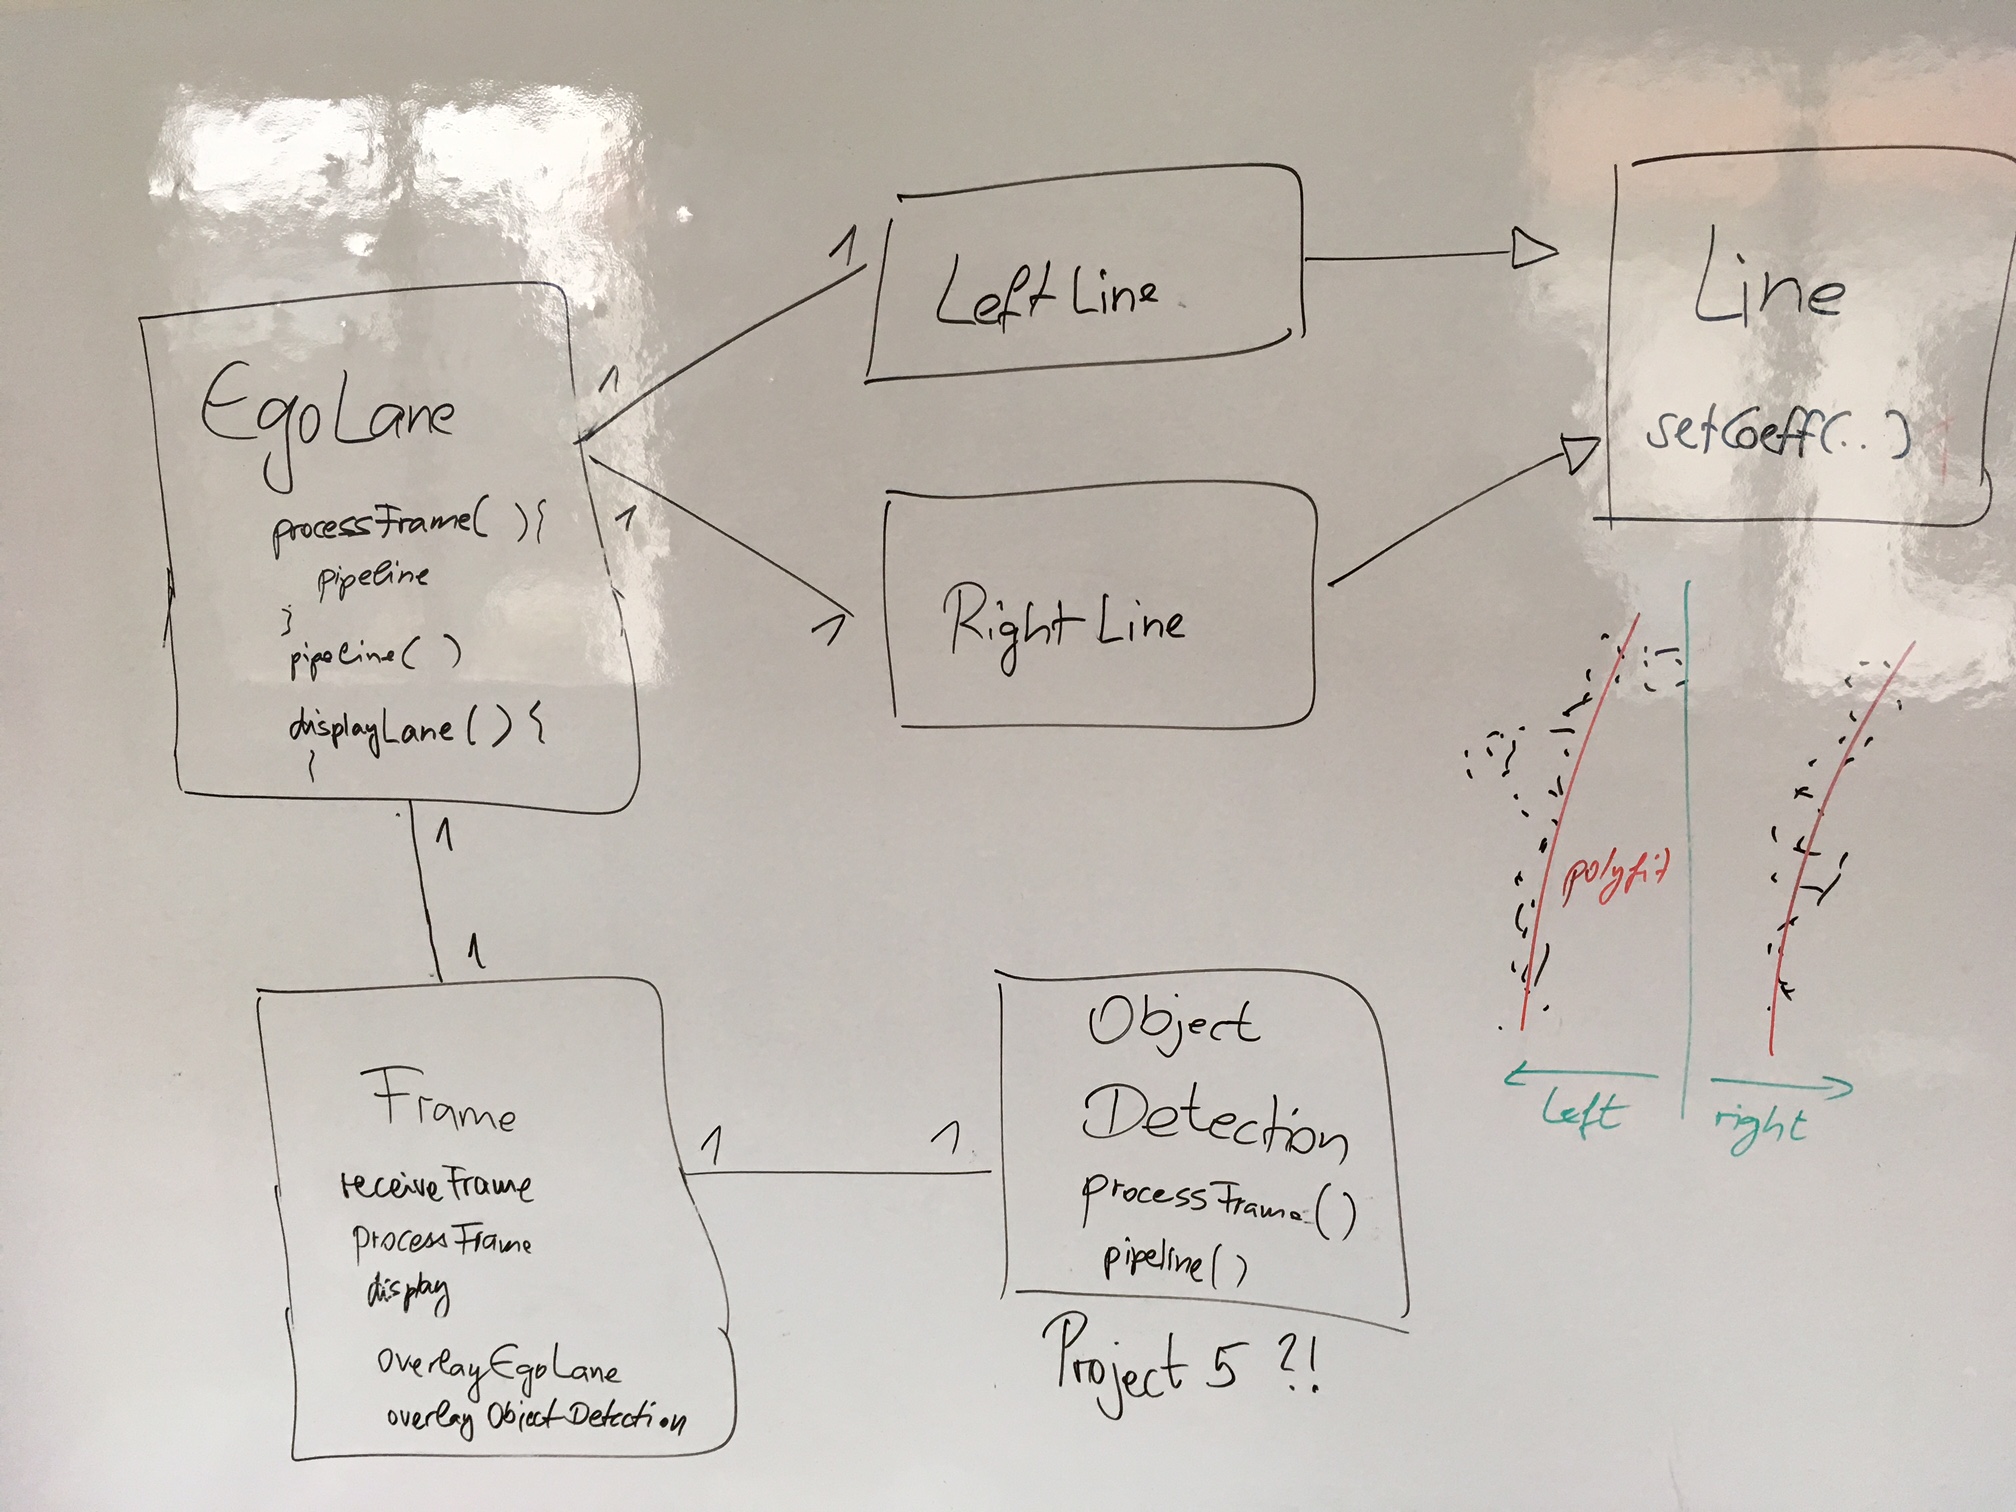 EgoLane
processFrame( ){
pipeline
}
pipeline( )
displayLane( ) {
}
1
1
1
1
Left Line
Right Line
Line
setCoeff(..)
1
1
Frame
receiveFrame
processFrame
display
overlayEgoLane
overlay ObjectDetection
1
1
Object
Detection
processFrame()
pipeline()
Project 5 ?!
polyfit
left
right